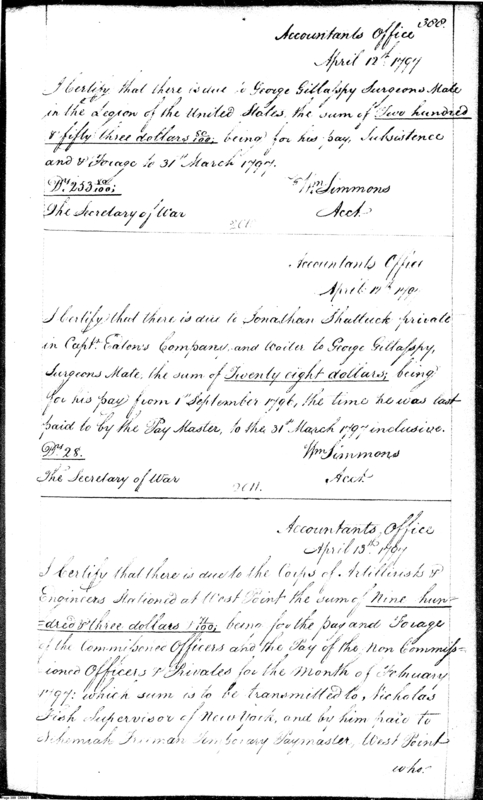 388.
Accountants Office
April 12th 1797
I Certify that there is due to George Gillaspy Surgeons Mate
in the Legion of the United States, the sum of Two hundred
& fifty three dollars 80/100; being for his pay, Subsistence
and & Forage to 31st March 1797.
Drs. 253 80/100;
Wm Simmons
The Secretary of War
Acct.
Accountants Office
April 12th 1797
I Certify that there is due to Jonathan Shattuck private
in Capt. Eaton's Company, and Waiter to George Gillaspy,
Surgeons Mate, the sum of Twenty eight dollars; being
for his pay from 1st September 1796, the time he was last
paid to by the Pay Master, to the 31st March 1797 inclusive.
Drs. 28.
Wm Simmons
The Secretary of War
Acct.
Accountants Office
April 13th 1797
I Certify that there is due to the Corps of Artillerists &
Engineers Stationed at West Point the sum of Nine hun-
=dred & three dollars /100; being for the pay and Forage
of the Commissioned Officers and the Pay of the Non Commiss-
=ioned Officers & Privates for the Month of February
1797; which sum is to be transmitted to Nicholas
Fish Supervisor of New York, and by him paid to
Nehemiah Freeman Temporary Paymaster, West Point
who.